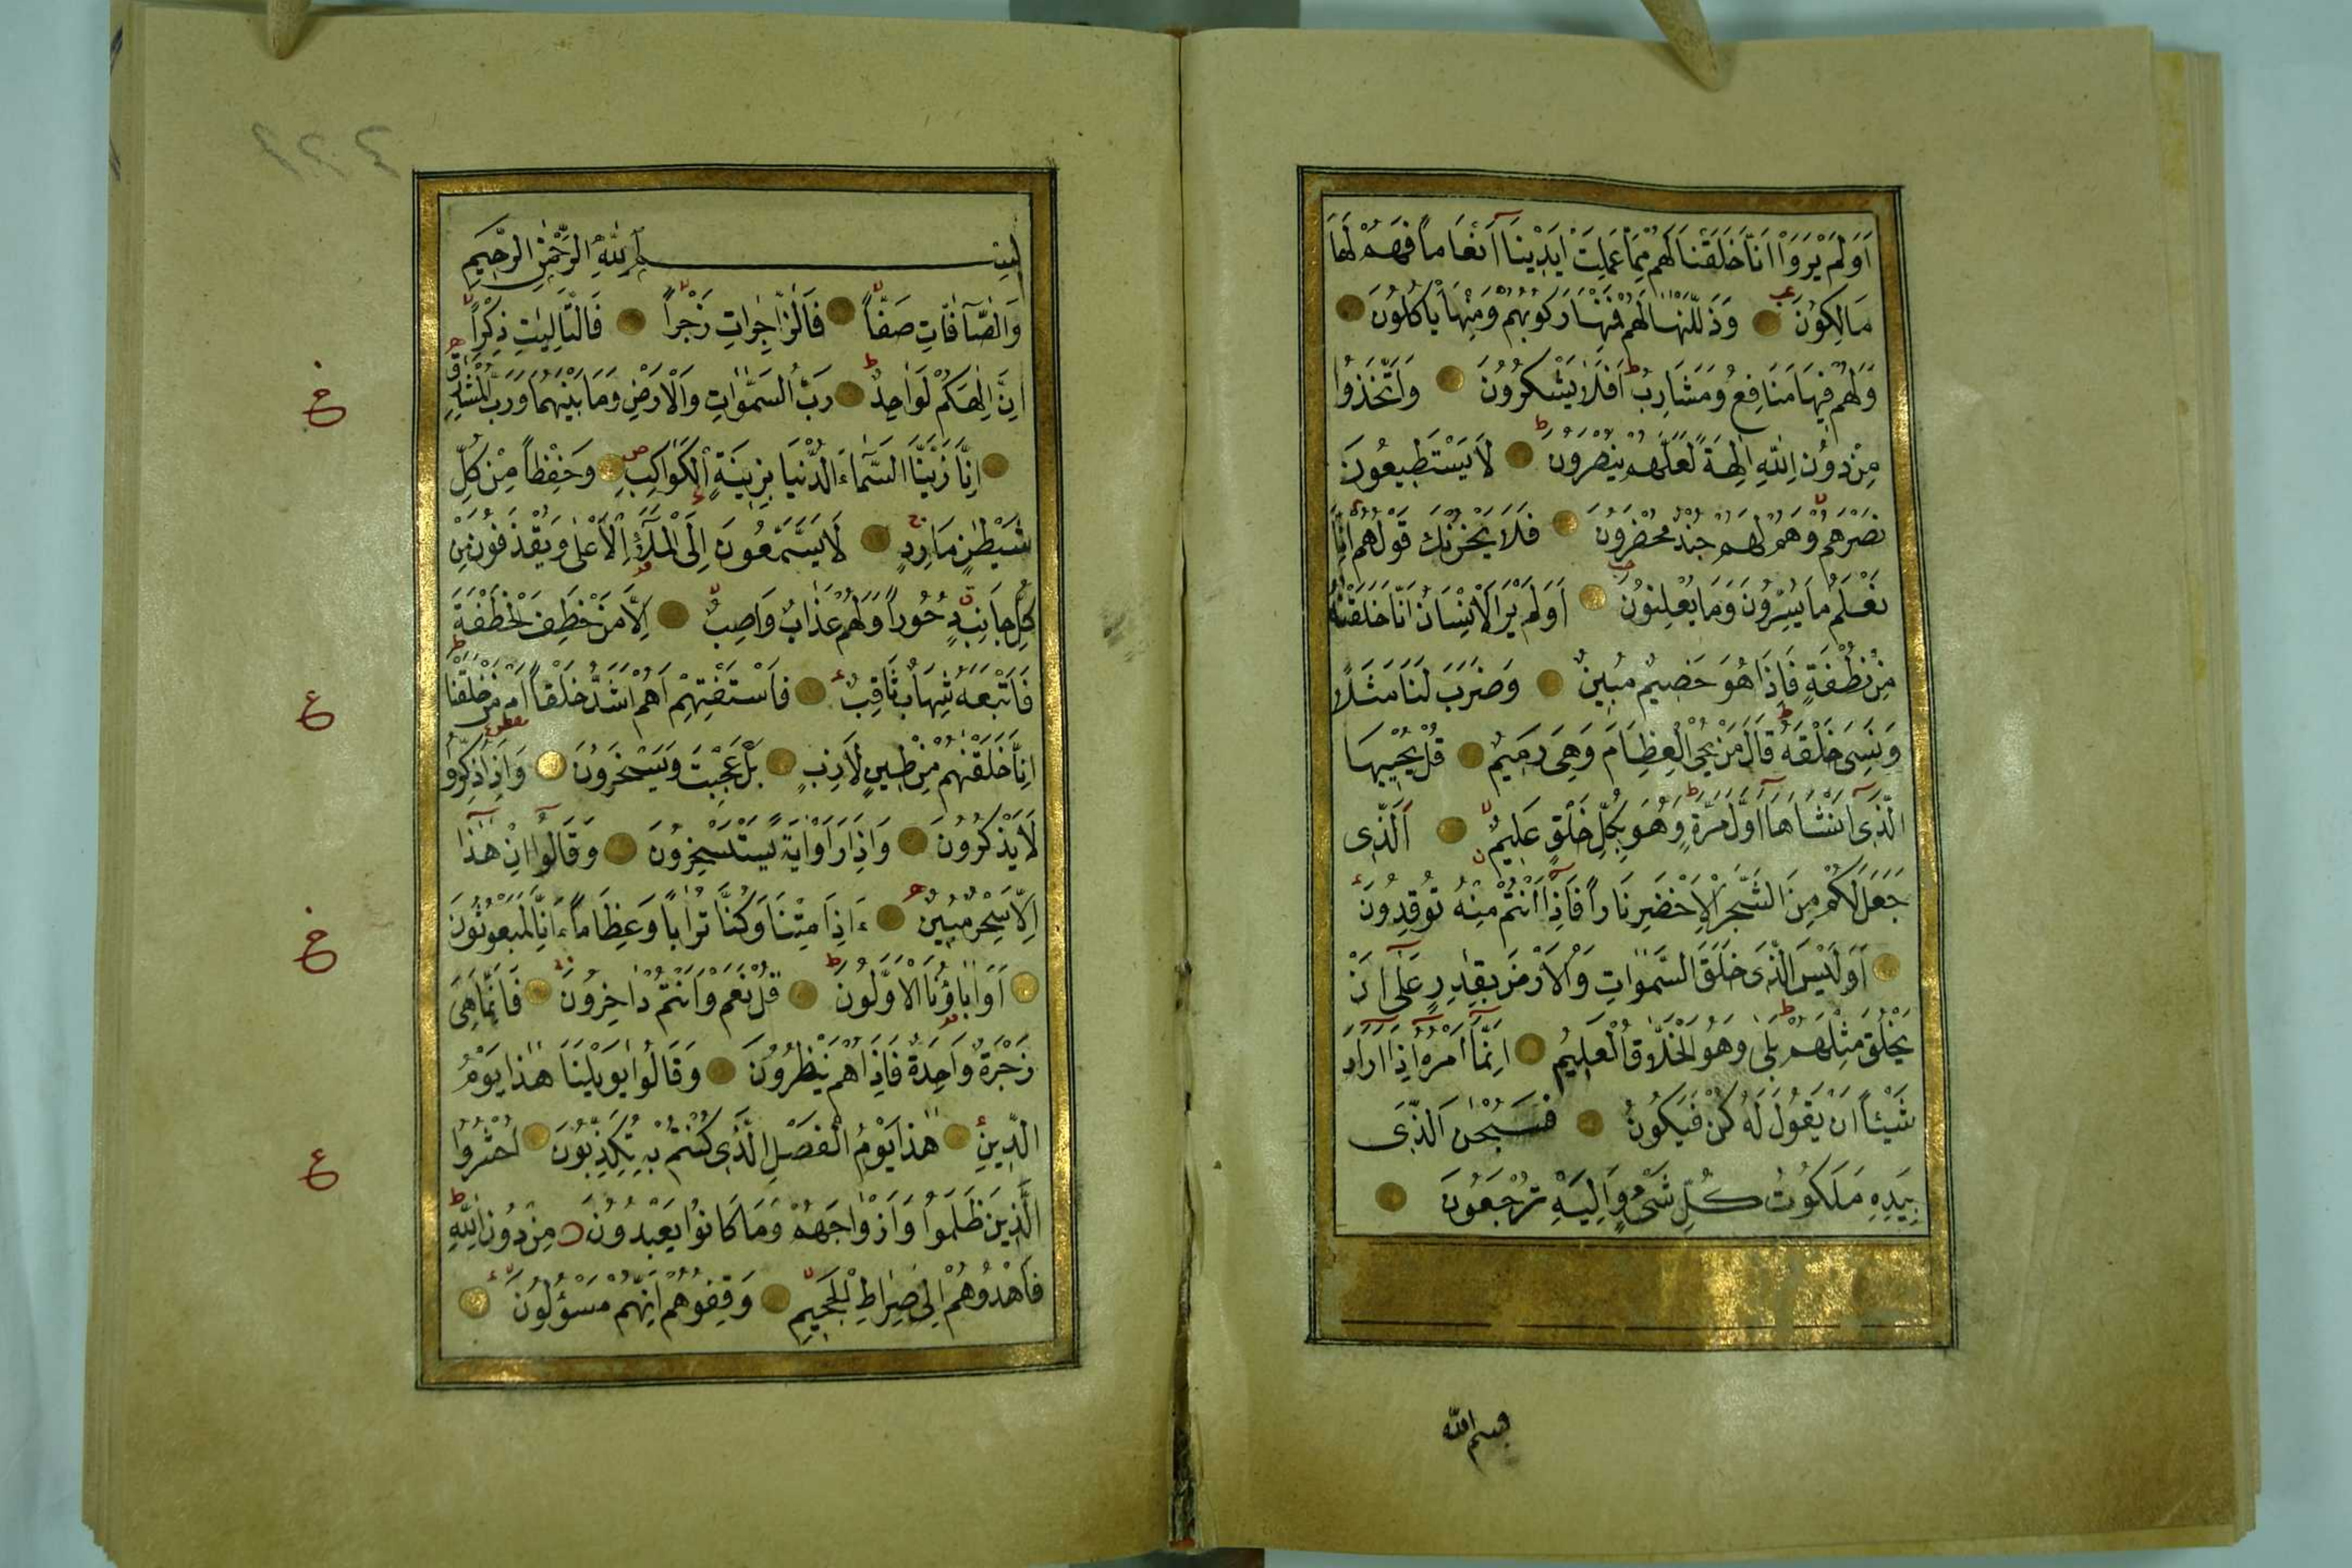 اَوَلَمْ يَرَوْا اَنَّا خَلَقْنَا لَهُمْ مِمَّا عَمِلَتْ اَيْدِينَا اَنْعَاماً فَهُمْ لَهَا
مَالِكُونَ وَذَلَّلْنَاهَا لَهُمْ فَمِنْهَا رَكُوبُهُمْ وَمِنْهَا يَأْكُلُونَ
وَلَهُمْ فِيهَا مَنَافِعُ وَمَشَارِبُ اَفَلَا يَشْكُرُونَ وَاتَّخَذُوا
مِنْ دُونِ اللّٰهِ اٰلِهَةً لَعَلَّهُمْ يُنْصَرُونَ لَا يَسْتَطِيعُونَ
نَصْرَهُمْ وَهُمْ لَهُمْ جُنْدٌ مُحْضَرُونَ فَلَا يَحْزُنْكَ قَوْلُهُمْ اِنَّا
نَعْلَمُ مَا يُسِرُّونَ وَمَا يُعْلِنُونَ اَوَلَمْ يَرَ الْاِنْسَانُ اَنَّا خَلَقْنٰهُ
مِنْ نُطْفَةٍ فَاِذَا هُوَ خَصِيمٌ مُبِينٌ وَضَرَبَ لَنَا مَثَلًا
وَنَسِيَ خَلْقَهُ قَالَ مَنْ يُحْيِ الْعِظَامَ وَهِيَ رَمِيمٌ قُلْ يُحْيِيهَا
الَّذِى اَنْشَاَهَا اَوَّلَ مَرَّةٍ وَهُوَ بِكُلِّ خَلْقٍ عَلِيمٌ اَلَّذِى
جَعَلَ لَكُمْ مِنَ الشَّجَرِ الْاَخْضَرِ نَاراً فَاِذَا اَنْتُمْ مِنْهُ تُوقِدُونَ
اَوَلَيْسَ الَّذِى خَلَقَ السَّمٰوَاتِ وَالْاَرْضَ بِقَادِرٍ عَلٰى اَنْ
يَخْلُقَ مِثْلَهُمْ بَلٰى وَهُوَ الْخَلَّاقُ الْعَلِيمُ اِنَّمَا اَمْرُهُ اِذَا اَرَادَ
شَيْئاً اَنْ يَقُولَ لَهُ كُنْ فَيَكُونُ فَسُبْحٰنَ الَّذِى
بِيَدِهِ مَلَكُوتُ كُلِّ شَىْءٍ وَاِلَيْهِ تُرْجَعُونَ
بسم الله
بِسْمِ اللّٰهِ الرَّحْمٰنِ الرَّحِيمِ
وَالصَّٓافَّاتِ صَفّاً فَالزَّاجِرَاتِ زَجْراً فَالتَّالِيَاتِ ذِكْراً
اِنَّ اِلٰهَكُمْ لَوَاحِدٌ رَبُّ السَّمٰوَاتِ وَالْاَرْضِ وَمَا بَيْنَهُمَا وَرَبُّ الْمَشَارِقِ
اِنَّا زَيَّنَّا السَّمَاءَ الدُّنْيَا بِزِينَةٍ الْكَوَاكِبِ وَحِفْظاً مِنْ كُلِّ
شَيْطٰنٍ مَارِدٍ لَا يَسَّمَّعُونَ اِلَى الْمَلَإِ الْاَعْلٰى وَيُقْذَفُونَ مِنْ
كُلِّ جَانِبٍ دُحُوراً وَلَهُمْ عَذَابٌ وَاصِبٌ اِلَّا مَنْ خَطِفَ الْخَطْفَةَ
فَاَتْبَعَهُ شِهَابٌ ثَاقِبٌ فَاسْتَفْتِهِمْ اَهُمْ اَشَدُّ خَلْقاً اَمْ مَنْ خَلَقْنَا
اِنَّا خَلَقْنٰهُمْ مِنْ طِينٍ لَازِبٍ بَلْ عَجِبْتَ وَيَسْخَرُونَ وَاِذَا ذُكِّرُوا
لَا يَذْكُرُونَ وَاِذَا رَاَوْا اٰيَةً يَسْتَسْخِرُونَ وَقَالُوا اِنْ هٰذَا
اِلَّا سِحْرٌ مُبِينٌ ءَاِذَا مِتْنَا وَكُنَّا تُرَاباً وَعِظَاماً ءَاِنَّا لَمَبْعُوثُونَ
اَوَاٰبَاؤُنَا الْاَوَّلُونَ قُلْ نَعَمْ وَاَنْتُمْ دَاخِرُونَ فَاِنَّمَا هِىَ
زَجْرَةٌ وَاحِدَةٌ فَاِذَا هُمْ يَنْظُرُونَ وَقَالُوا يٰوَيْلَنَا هٰذَا يَوْمُ
الدِّينِ هٰذَا يَوْمُ الْفَصْلِ الَّذِى كُنْتُمْ بِهِ تُكَذِّبُونَ اُحْشُرُوا
الَّذِينَ ظَلَمُوا وَاَزْوَاجَهُمْ وَمَا كَانُوا يَعْبُدُونَ مِنْ دُونِ اللّٰهِ
فَاهْدُوهُمْ اِلٰى صِرَاطِ الْجَحِيمِ وَقِفُوهُمْ اِنَّهُمْ مَسْؤُلُونَ